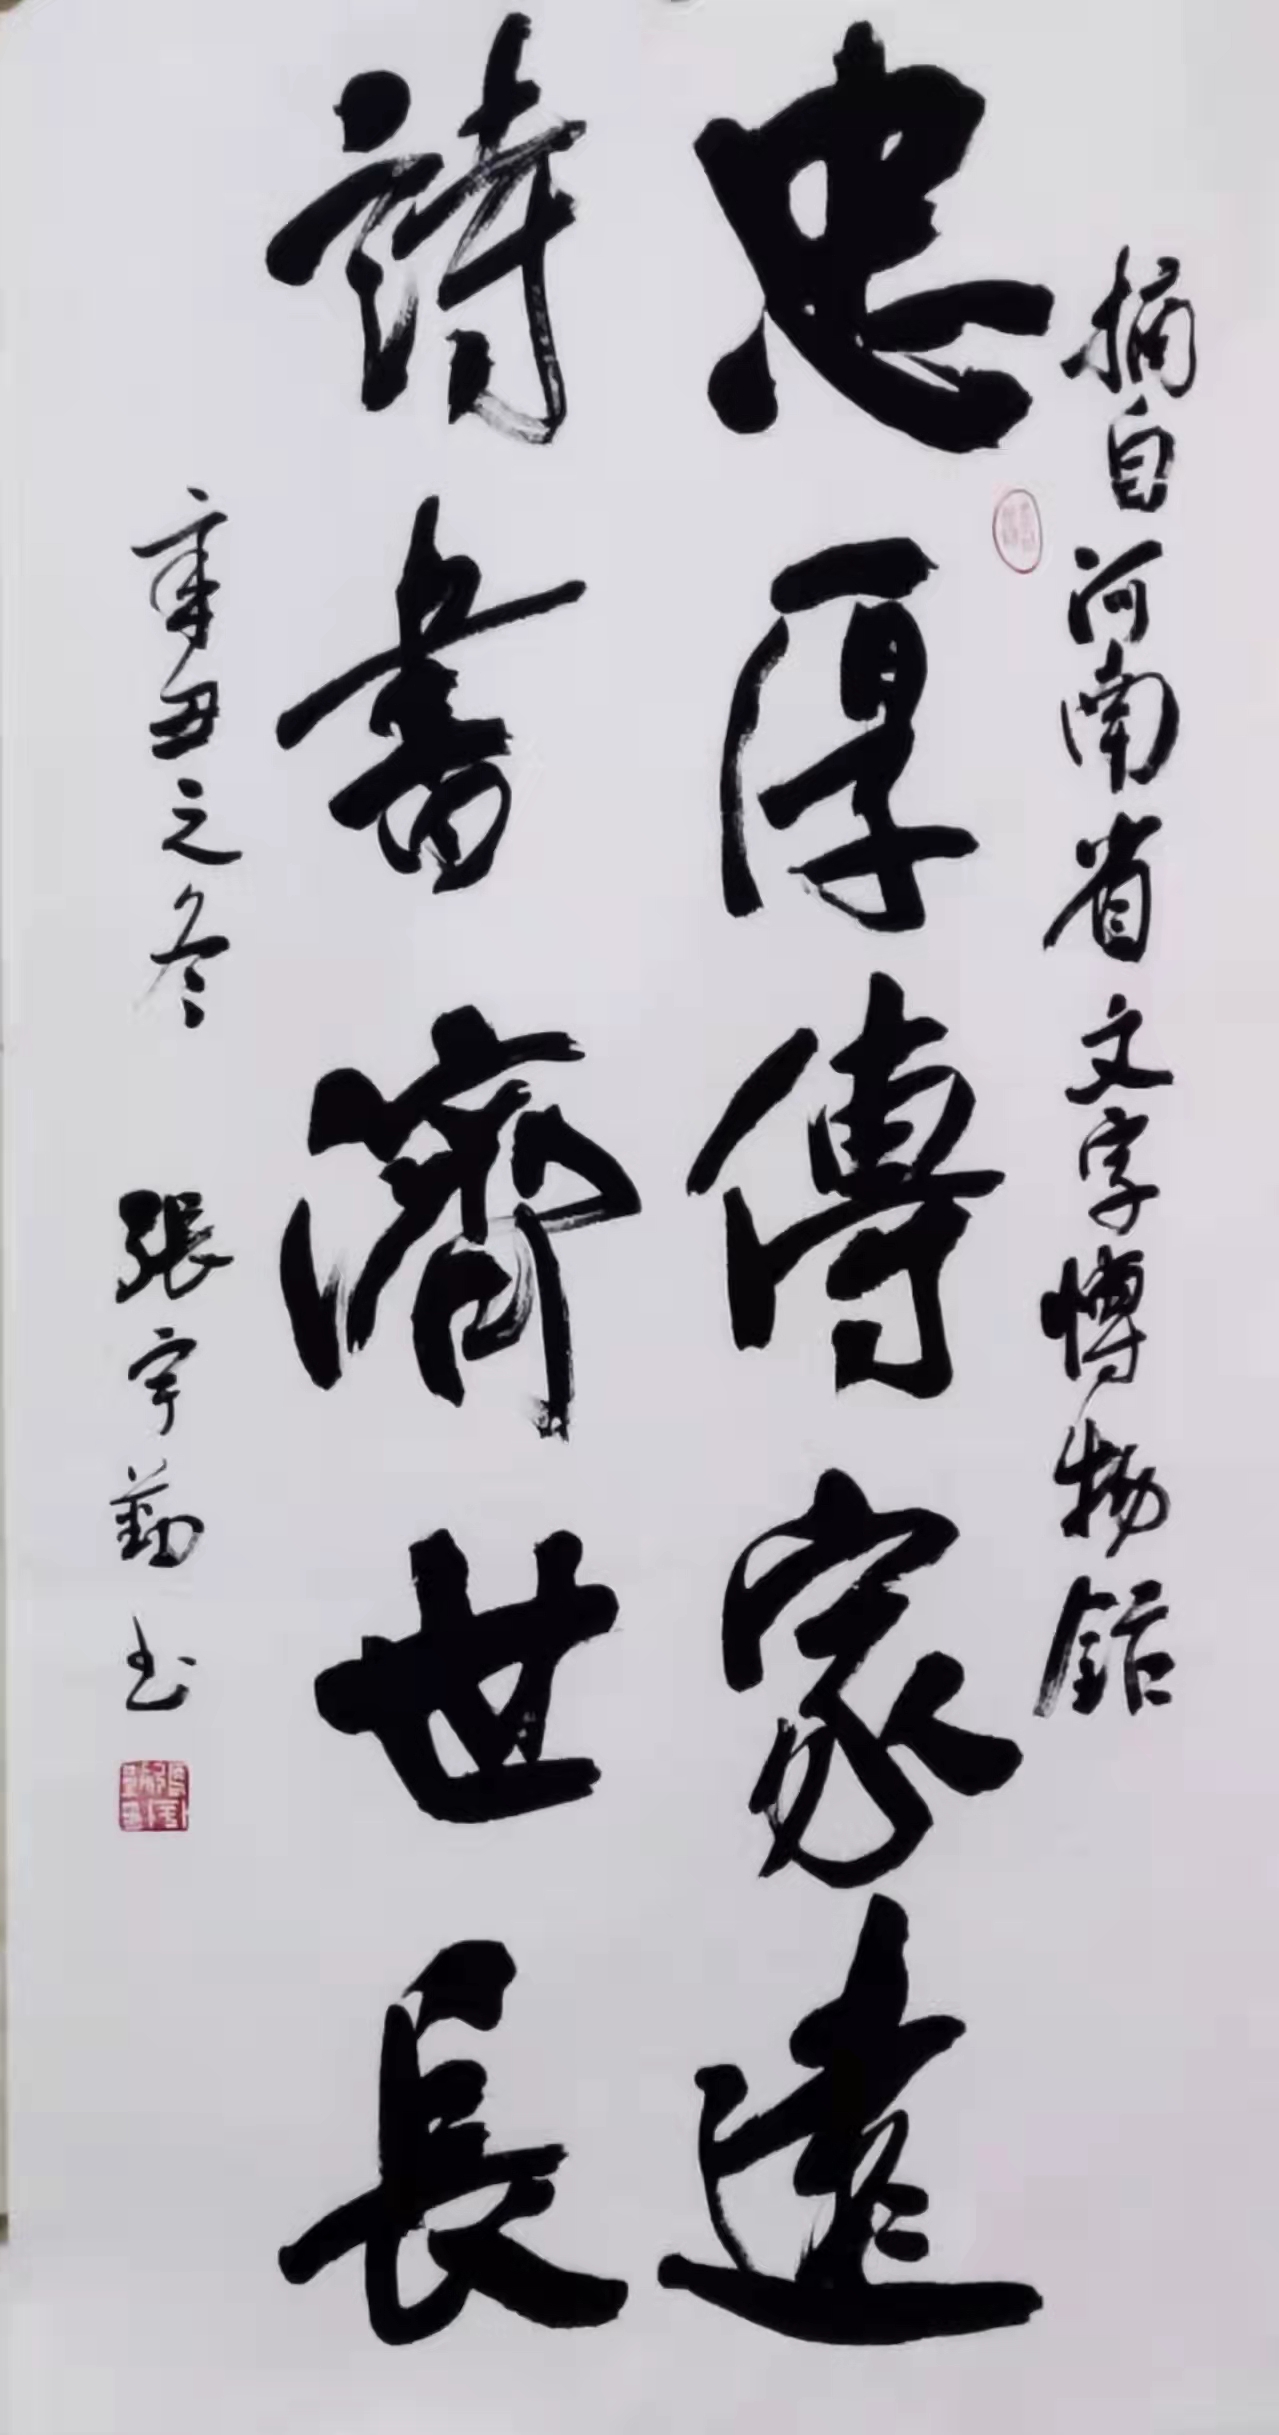 摘自河南省文字博物館
忠厚傳家遠
詩書濟世長
辛丑之冬 張宇勤书